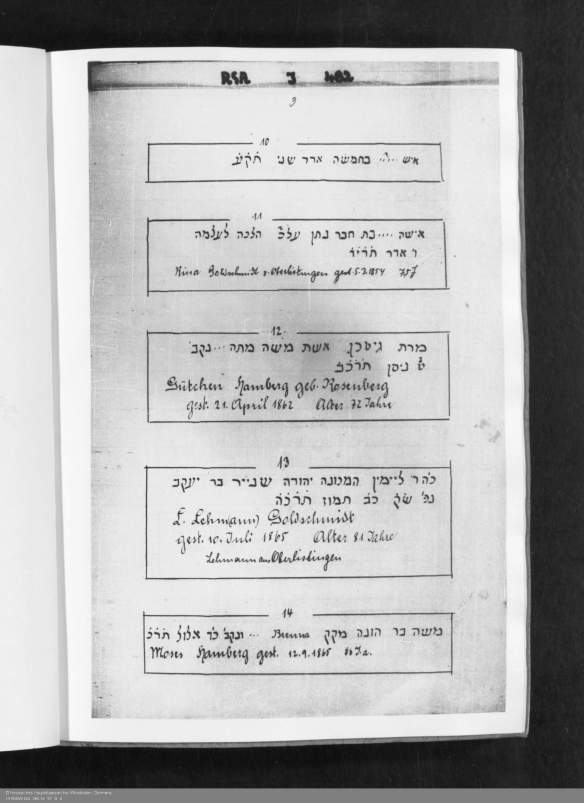 RSA J 402
9
10
איש ..... בחמשה אדר שני תקע
11
אישה ..... בת חבר נתן הלכה לעולמה
ו אדר תריד
Oberlistingen gest. 5.3.1854 75 J
12
מרת גיטכן אשת משה מתה ... נקב
ט ניסן תרכב
Gütchen Hamberg geb. Rosenberg
gest. 21. April 1862 Alter 72 Jahre
13
ליימין המכונה יהודה שנייר בר יעקב
כב תמוז תרכה
L. Lehmann) Goldschmidt
gest. 10. Juli 1865 Alter 81 Jahre
Lehmann aus Oberlistingen
14
משה בר הונה מקק Brenna ... ונקב כד אלול תרכ
Moses Hamberg gest. 12.9.1865